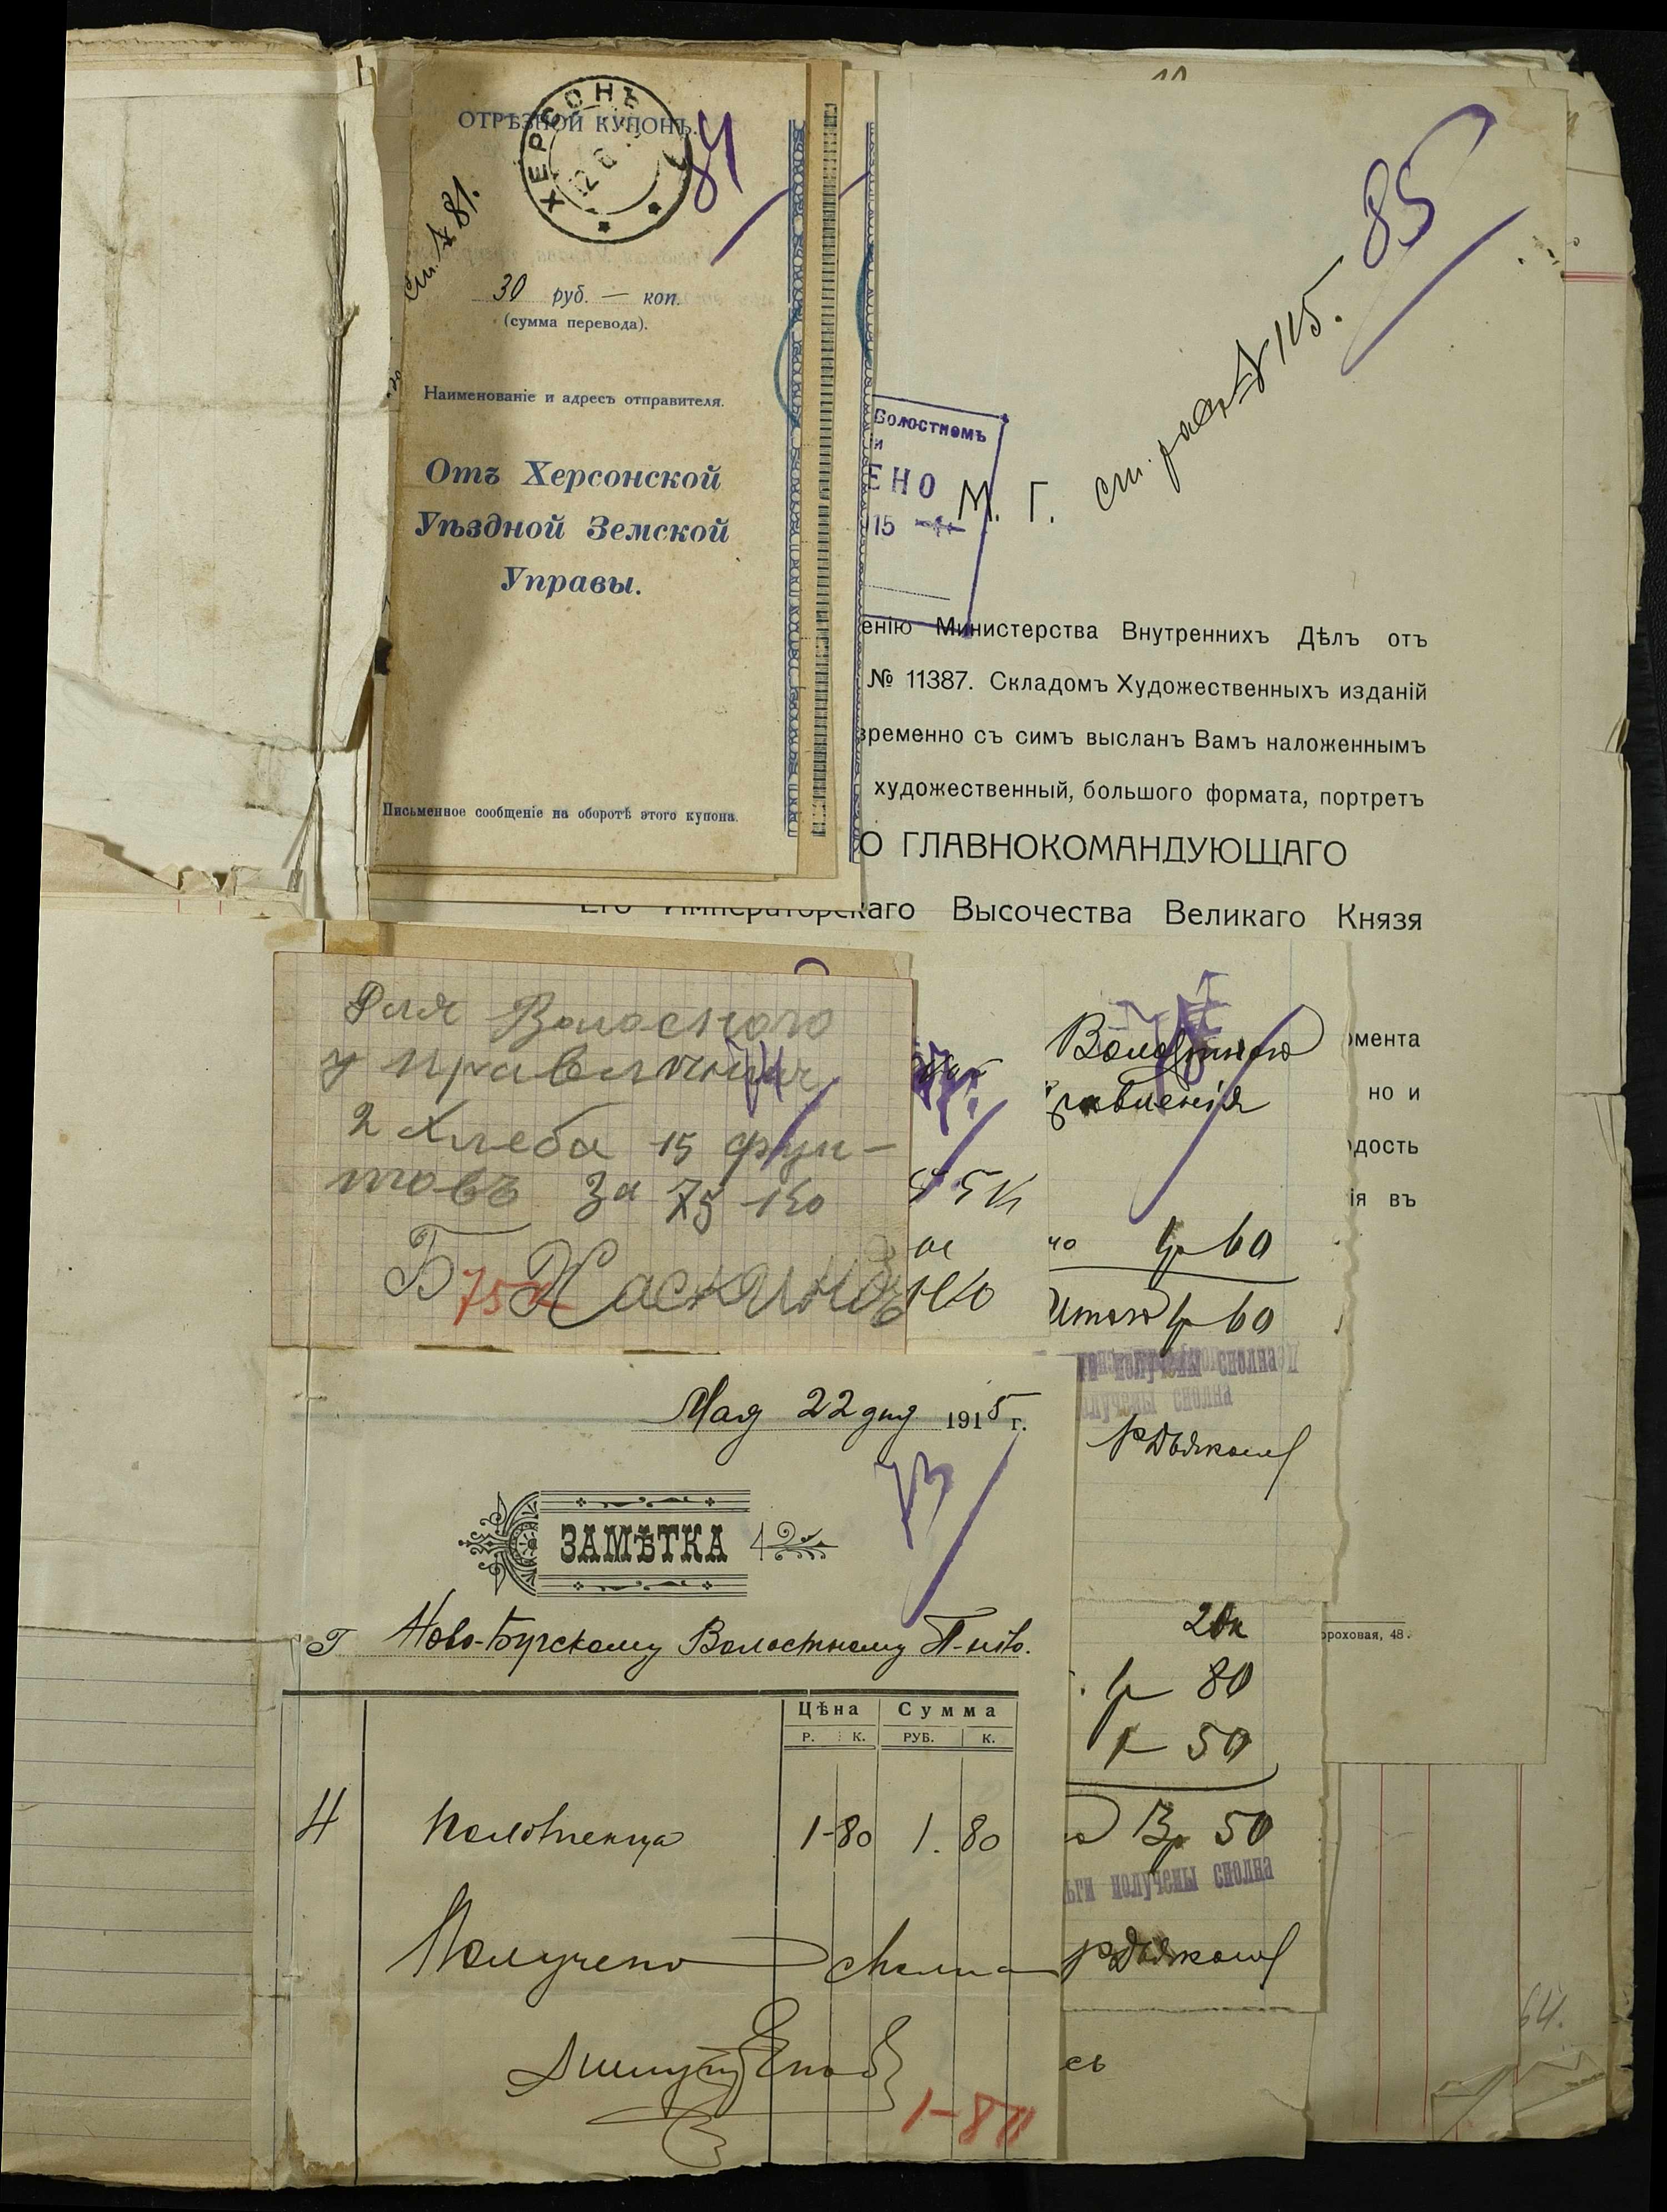 ОТРѢЗНОЙ КУПОНЪ.
ХЕРСОНЪ
12 6
84
ст. № 81.
30 руб. — коп.
(сумма перевода).
Наименованіе и адресъ отправителя.
Отъ Херсонской
Уѣздной Земской
Управы.
Письменное сообщеніе на оборотѣ этого купона.
85
ст. расх. № 115.
Волостномъ
и
ЕНО
15
М. Г.
енію Министерства Внутреннихъ Дѣлъ отъ
№ 11387. Складомъ Художественныхъ изданій
временно съ симъ высланъ Вамъ наложеннымъ
художественный, большого формата, портретъ
О ГЛАВНОКОМАНДУЮЩАГО
Его Императорскаго Высочества Великаго Князя
мента
но и
дость
ія въ
ороховая, 48.
Для Волосного
управления
2 хлеба 15 фун-
товъ за 75 ко
Б
75к
5 к
Волостного
Правленія
1р 60
Итого 1р 60
получены сполна
получены сполна
Мая 22 дня 1915 г.
73
ЗАМѢТКА
Г Ново-Бугскому Волостному П-нію.
Цѣна Сумма
Р. К. РУБ. К.
4 Полотенца 1-80 1. 80
Получено сполна
1-80
20к
1р 80
1- 50
3р 50
ьги получены сполна
сь
64.